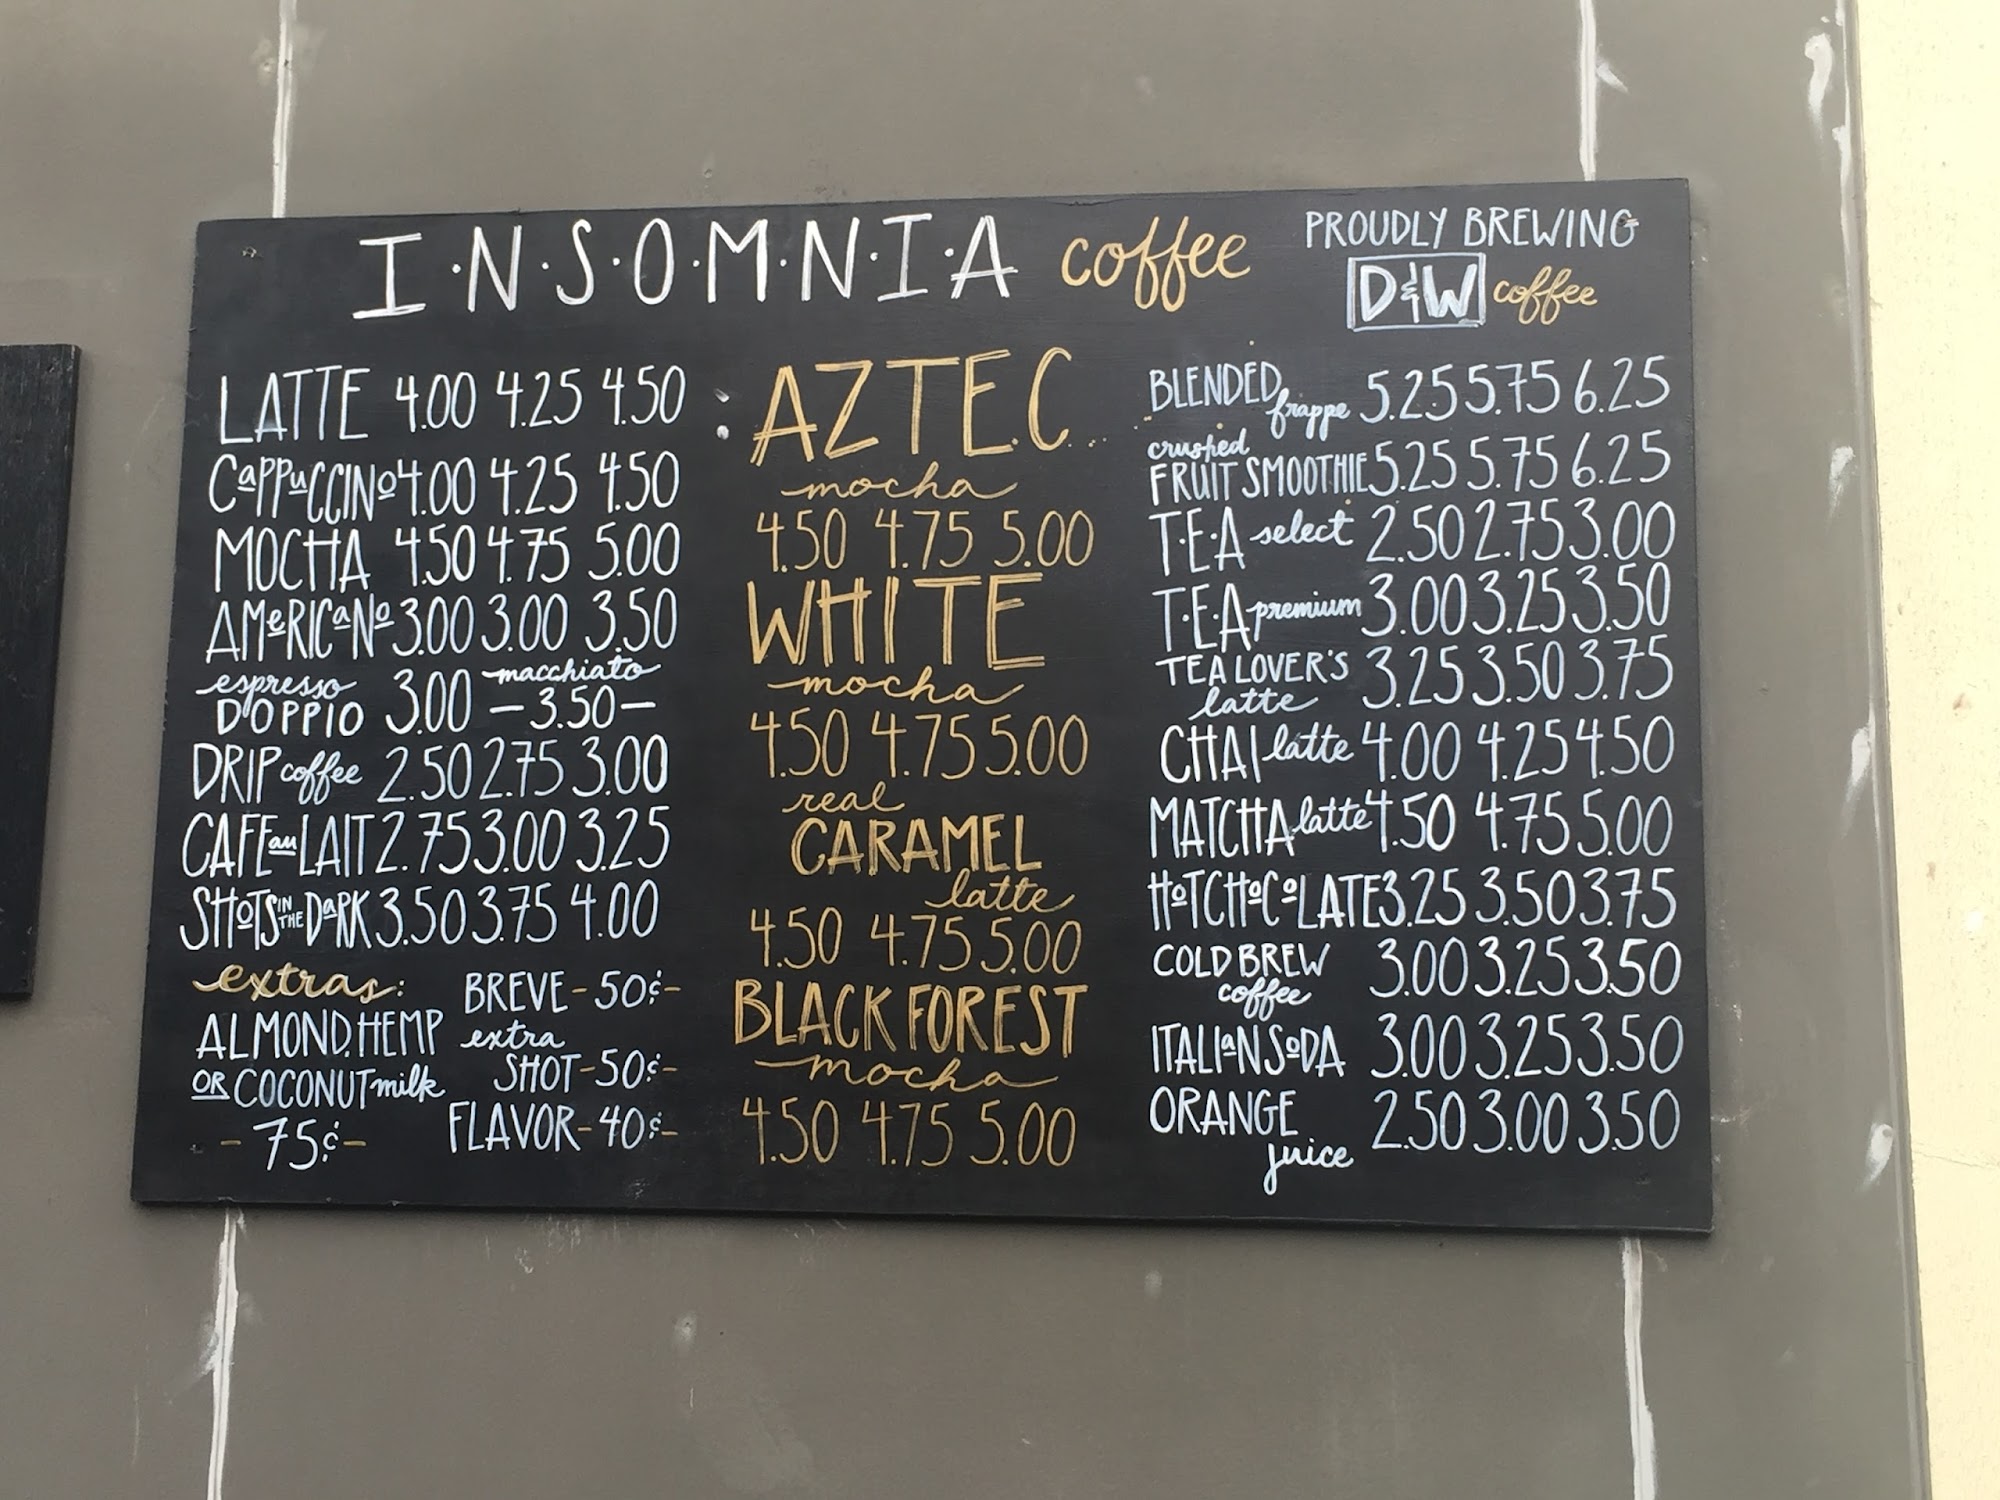 I·N·S·O·M·N·I·A coffee
PROUDLY BREWING
D&W coffee
LATTE 4.00 4.25 4.50
CAPPUCCINO 4.00 4.25 4.50
MOCHA 4.50 4.75 5.00
AMERICANO 3.00 3.00 3.50
espresso DOPPIO 3.00 macchiato -3.50-
DRIP coffee 2.50 2.75 3.00
CAFE au LAIT 2.75 3.00 3.25
SHOTS IN THE DARK 3.50 3.75 4.00
extras:
ALMOND, HEMP
OR COCONUT milk
-75¢-
BREVE-50¢-
extra
SHOT-50¢-
FLAVOR-40¢-
AZTEC
mocha
4.50 4.75 5.00
WHITE
mocha
4.50 4.75 5.00
real
CARAMEL
latte
4.50 4.75 5.00
BLACK FOREST
mocha
4.50 4.75 5.00
BLENDED frappe 5.25 5.75 6.25
crushed
FRUIT SMOOTHIE 5.25 5.75 6.25
T·E·A select 2.50 2.75 3.00
T·E·A premium 3.00 3.25 3.50
TEA LOVER'S latte 3.25 3.50 3.75
CHAI latte 4.00 4.25 4.50
MATCHA latte 4.50 4.75 5.00
HOT CHOCOLATE 3.25 3.50 3.75
COLD BREW coffee 3.00 3.25 3.50
ITALIAN SODA 3.00 3.25 3.50
ORANGE juice 2.50 3.00 3.50